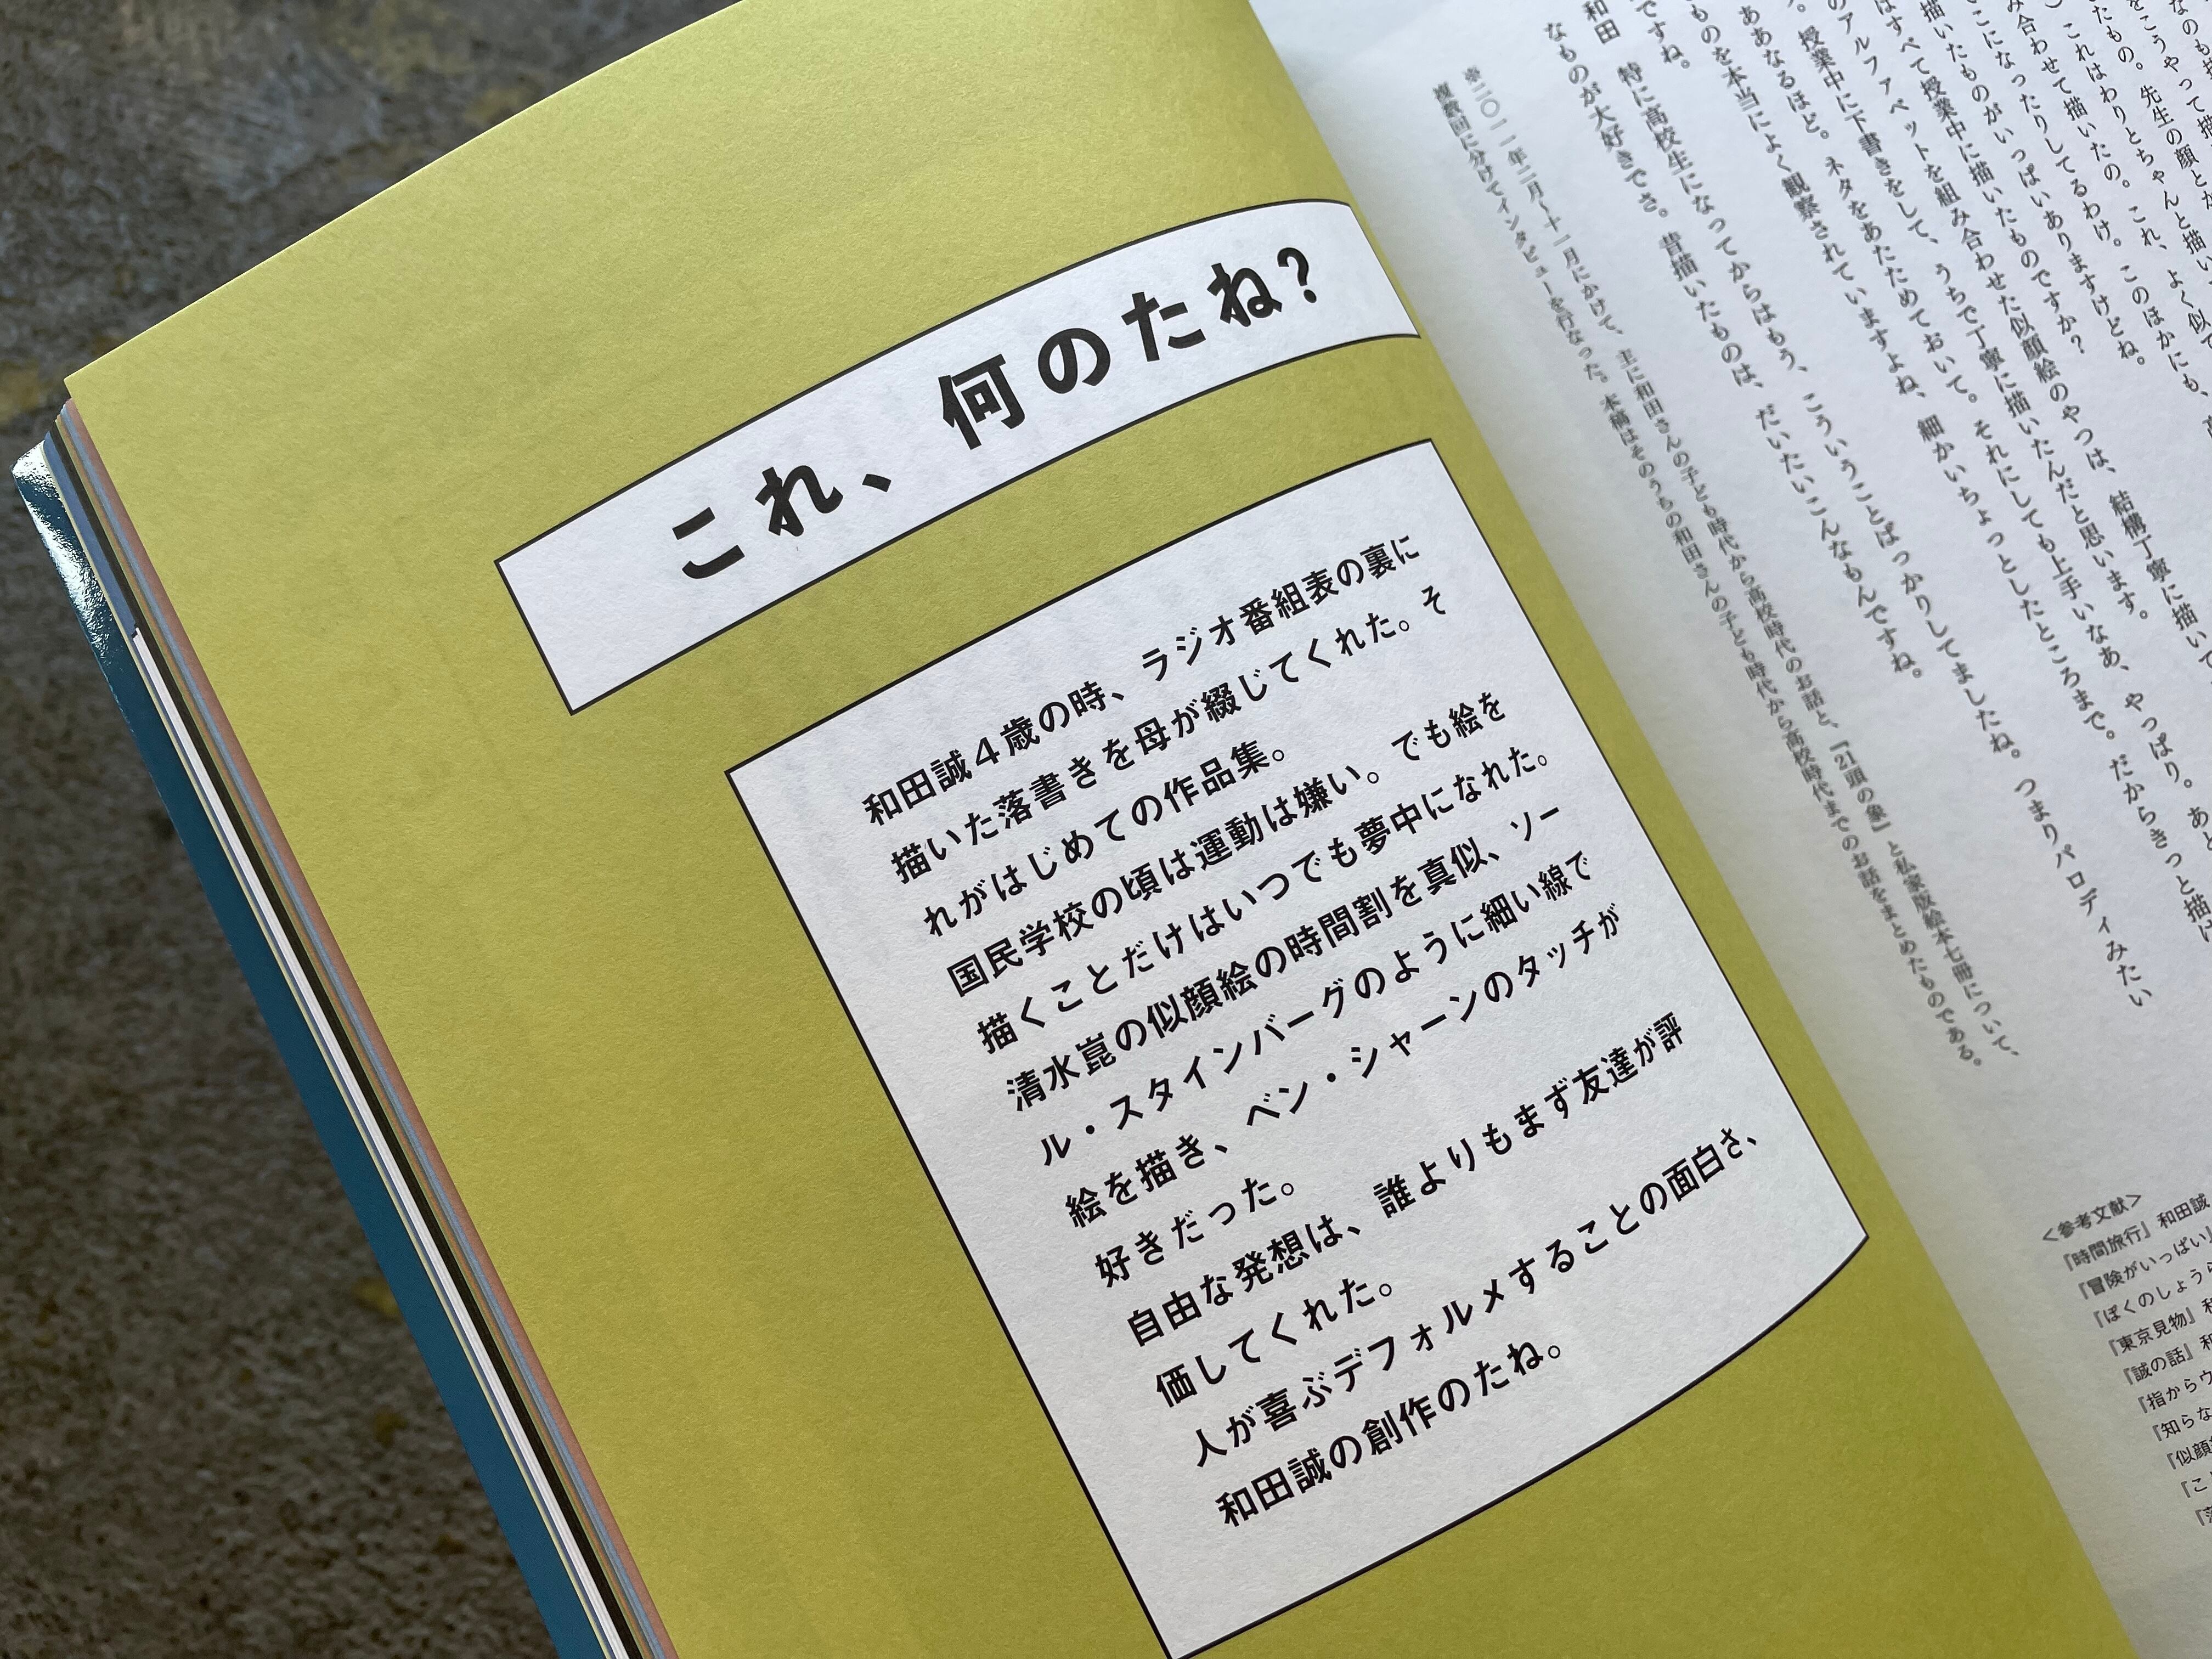 これ、何のたね?
和田誠4歳の時、ラジオ番組表の裏に
描いた落書きを母が綴じてくれた。そ
れがはじめての作品集。
国民学校の頃は運動は嫌い。でも絵を
描くことだけはいつでも夢中になれた。
清水崑の似顔絵の時間割を真似、ソー
ル・スタインバーグのように細い線で
絵を描き、ベン・シャーンのタッチが
好きだった。
自由な発想は、誰よりもまず友達が評
価してくれた。
人が喜ぶデフォルメすることの面白さ、
和田誠の創作のたね。
はすべて授業中に描いたものですか?
のアルファベットを組み合わせた似顔絵のやつは、結構丁寧に描いて
。授業中に下書きをして、うちで丁寧に描いたんだと思います。
ああなるほど。ネタをあたためておいて。それにしても上手いなあ、やっぱり。あと
ものを本当によく観察されていますよね、細かいちょっとしたところまで。だからきっと描け
ですね。
和田　特に高校生になってからはもう、こういうことばっかりしてましたね。つまりパロディみたい
なものが大好きでさ。昔描いたものは、だいたいこんなもんですね。
※二〇二一年二月〜十一月にかけて、主に和田さんの子ども時代から高校時代のお話と、『21頭の象』と私家版絵本七冊について、
複数回に分けてインタビューを行なった。本稿はそのうちの和田さんの子ども時代から高校時代までのお話をまとめたものである。
<参考文献>
『時間旅行』和田誠
『冒険がいっぱい』
『ぼくのしょうら
『東京見物』和
『誠の話』和
『指からウ
『知らな
『似顔
『こ